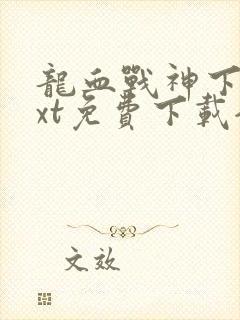 龍血戰神下
xt免費下載
文效